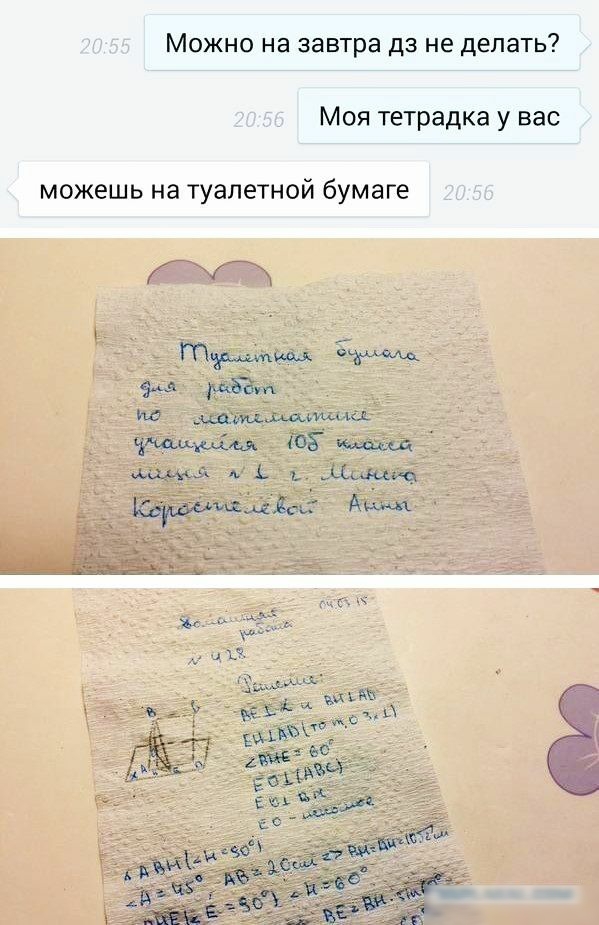 20:55 Можно на завтра дз не делать?
20:56 Моя тетрадка у вас
можешь на туалетной бумаге 20:56
Туалетная бумага
для работ
по математике
учащейся 10б класса
лицея №1 г. Минска
Коростелёвой Анны
Домашняя 04.03.15
работа
№ 428
Решение:
BE⊥α и BH⊥AD
EH⊥AD (то т. о 3х⊥)
∠BHE = 60°
EO⊥(ABC)
EO⊥BH
EO - искомое
ΔABH (∠H=90°)
∠A=45°, AB=20см => BH=AH=10√2см
ΔBHE (∠E=90°) ∠H=60°
BE=BH·sin60°